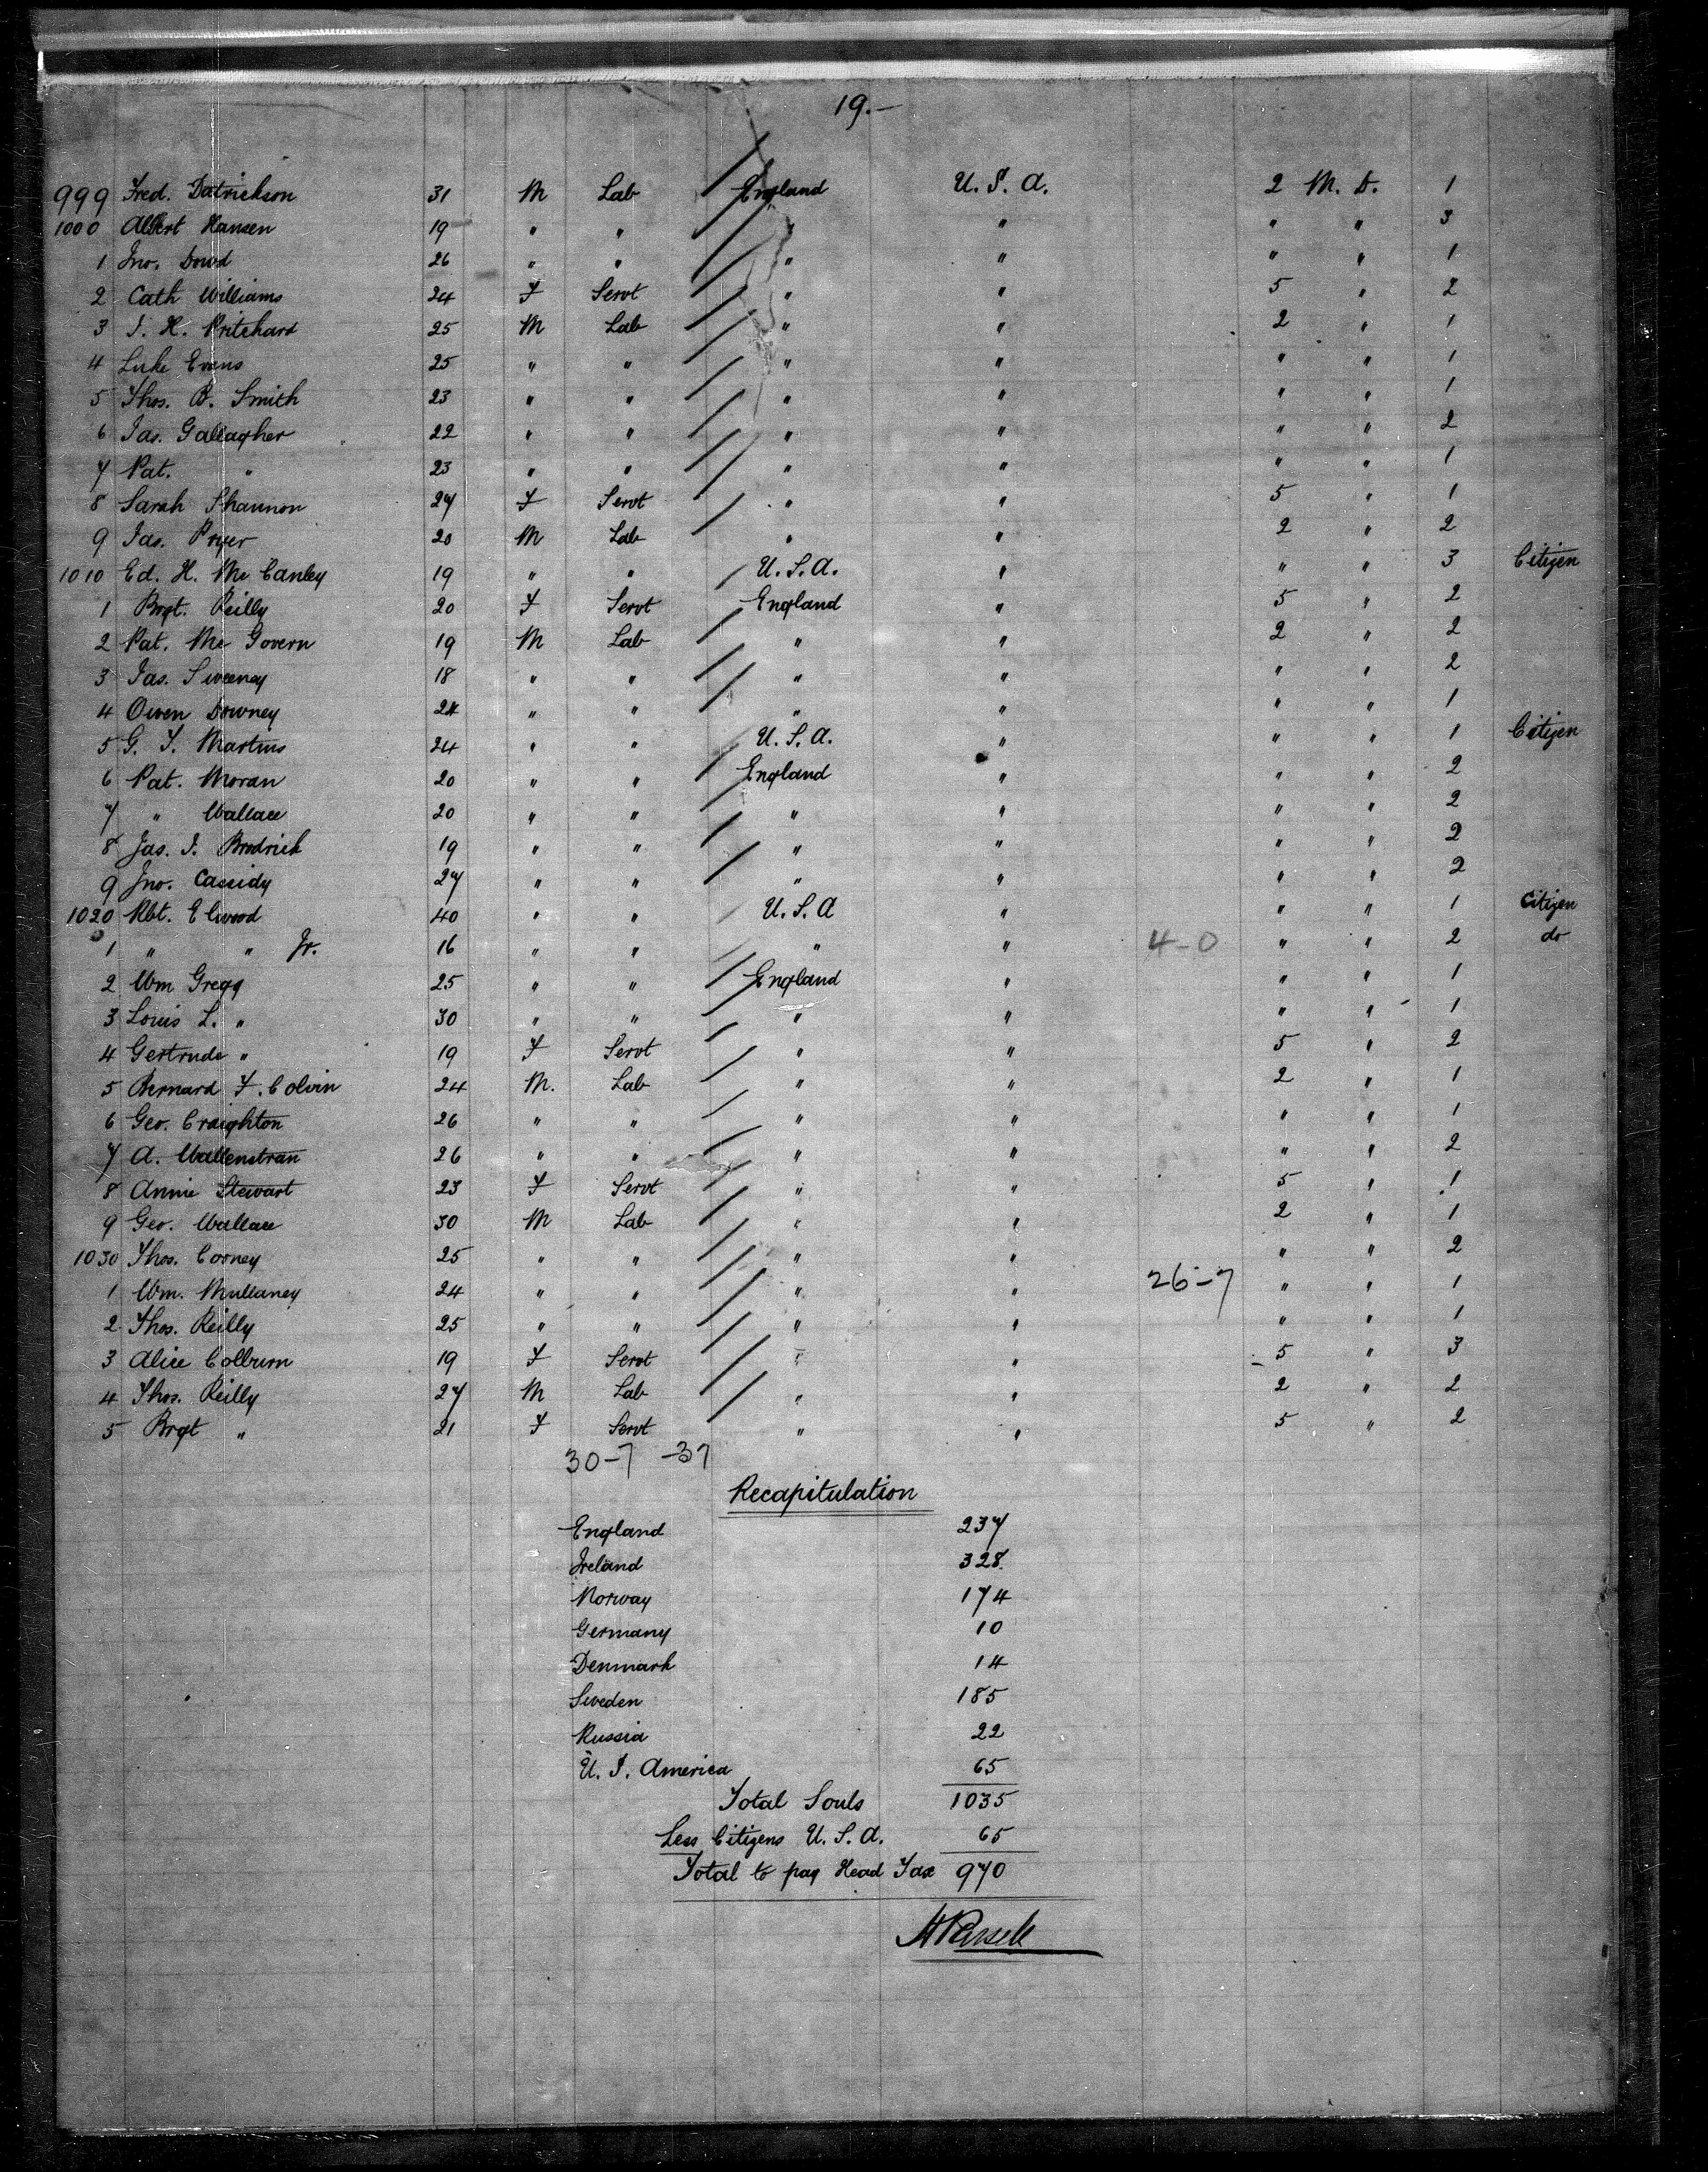 19.—
999 Fred. Datrickson 31 M Lab England U. S. A. 2 M. D. 1
1000 Albert Hansen 19 " " " " " " 3
1 Jno. Dowd 26 " " " " " " 1
2 Cath Williams 24 F Servt " " 5 " 2
3 J. H. Pritchard 25 M Lab " " 2 " 1
4 Luke Evans 25 " " " " " " 1
5 Thos. B. Smith 23 " " " " " " 1
6 Jas. Gallagher 22 " " " " " " 2
7 Pat. " 23 " " " " " " 1
8 Sarah Shannon 27 F Servt " " 5 " 1
9 Jas. Pryer 20 M Lab " " 2 " 2
1010 Ed. H. Mc Canley 19 " " U. S. A. " " " 3 Citizen
1 Brgt. Reilly 20 F Servt England " 5 " 2
2 Pat. Mc Govern 19 M Lab " " 2 " 2
3 Jas. Sweeney 18 " " " " " " 2
4 Owen Downey 24 " " " " " " 1
5 G. F. Martins 24 " " U. S. A. " " " 1 Citizen
6 Pat. Moran 20 " " England " " " 2
7 " Wallace 20 " " " " " " 2
8 Jas. J. Brodrick 19 " " " " " " 2
9 Jno. Cassidy 27 " " " " " " 2
1020 Rbt. Elwood 40 " " U. S. A " " " 1 Citizen
1 " " Jr. 16 " " " " 4-0 " " 2 do
2 Wm Gregg 25 " " England " " " 1
3 Louis L. " 30 " " " " " " 1
4 Gertrude " 19 F Servt " " 5 " 2
5 Bernard F. Colvin 24 M. Lab " " 2 " 1
6 Geo. Craighton 26 " " " " " " 1
7 A. Wallenstran 26 " " " " " " 2
8 Annie Stewart 23 F Servt " " 5 " 1
9 Geo. Wallace 30 M Lab " " 2 " 1
1030 Thos. Corney 25 " " " " " " 2
1 Wm. Mullaney 24 " " " " 26-7 " " 1
2 Thos. Reilly 25 " " " " " " 1
3 Alice Colburn 19 F Servt " " 5 " 3
4 Thos. Reilly 27 M Lab " " 2 " 2
5 Brgt " 21 F Servt " " 5 " 2
30-7 -37
Recapitulation
England 237
Ireland 328
Norway 174
Germany 10
Denmark 14
Sweden 185
Russia 22
U. S. America 65
Total Souls 1035
Less Citizens U. S. A. 65
Total to pay Head Tax 970